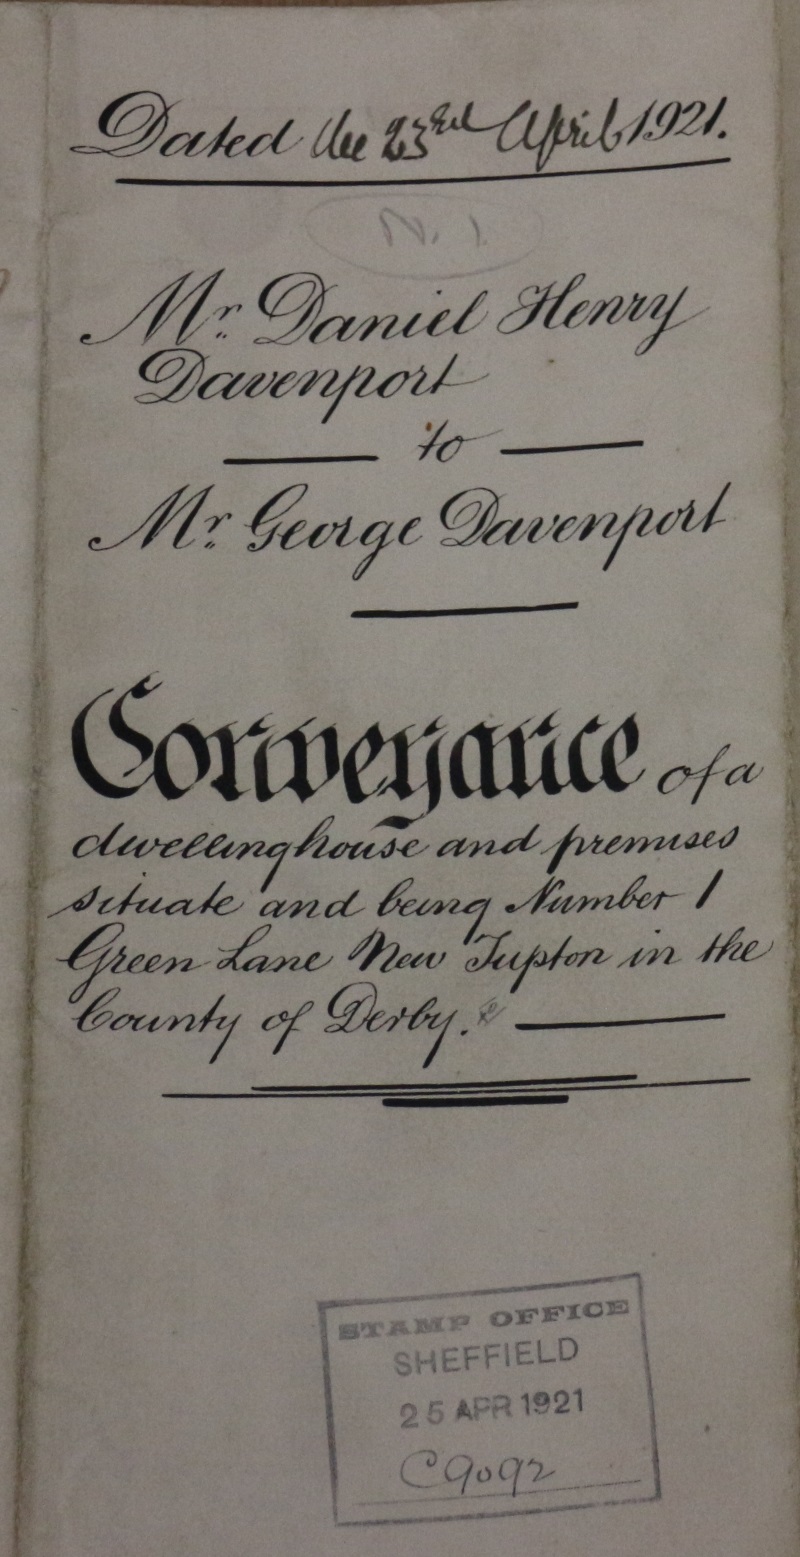 Dated the 23rd April 1921.
N. 1
Mr. Daniel Henry
Davenport
to
Mr. George Davenport
Conveyance of a
dwellinghouse and premises
situate and being Number 1
Green Lane New Tupton in the
County of Derby.
STAMP OFFICE
SHEFFIELD
25 APR 1921
C9092